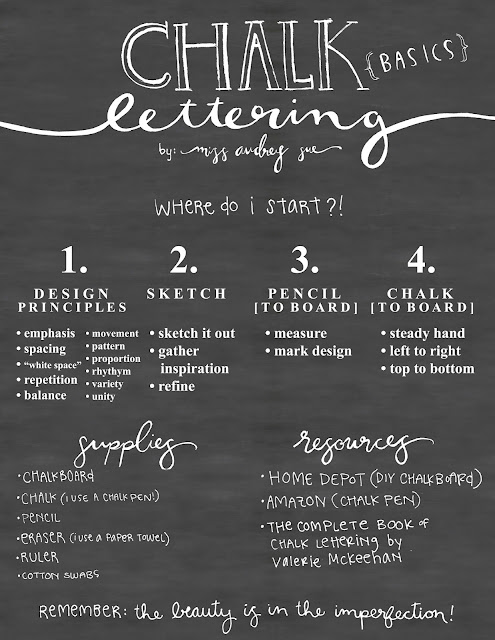 CHALK {BASICS}
lettering
by: miss audrey sue
WHERE do i START?!
1.
DESIGN
PRINCIPLES
• emphasis
• spacing
• "white space"
• repetition
• balance
• movement
• pattern
• proportion
• rhythym
• variety
• unity
2.
SKETCH
• sketch it out
• gather
inspiration
• refine
3.
PENCIL
[TO BOARD]
• measure
• mark design
4.
CHALK
[TO BOARD]
• steady hand
• left to right
• top to bottom
supplies
• CHALKBOARd
• CHALK (i USE A CHALK PEN!)
• PENCIL
• ERASER (i USE A PAPER TOWEL)
• RULER
• COTTON SWABS
resources
• HOME DEPOT (DIY CHALKBOARd)
• AMAZON (CHALK PEN)
• THE COMPLETE BOOK OF
CHALK LETTERING by
VALERIE McKEEHAN
REMEMBER: the beauty is in the imperfection!